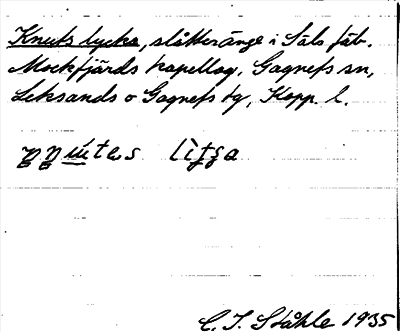 Knuts lycka, slåtteränge i Säls fäb.
Mockfjärds kapellag, Gagnefs sn,
Leksands o Gagnefs tg, Kopp. l.
C. I. Ståhle 1935